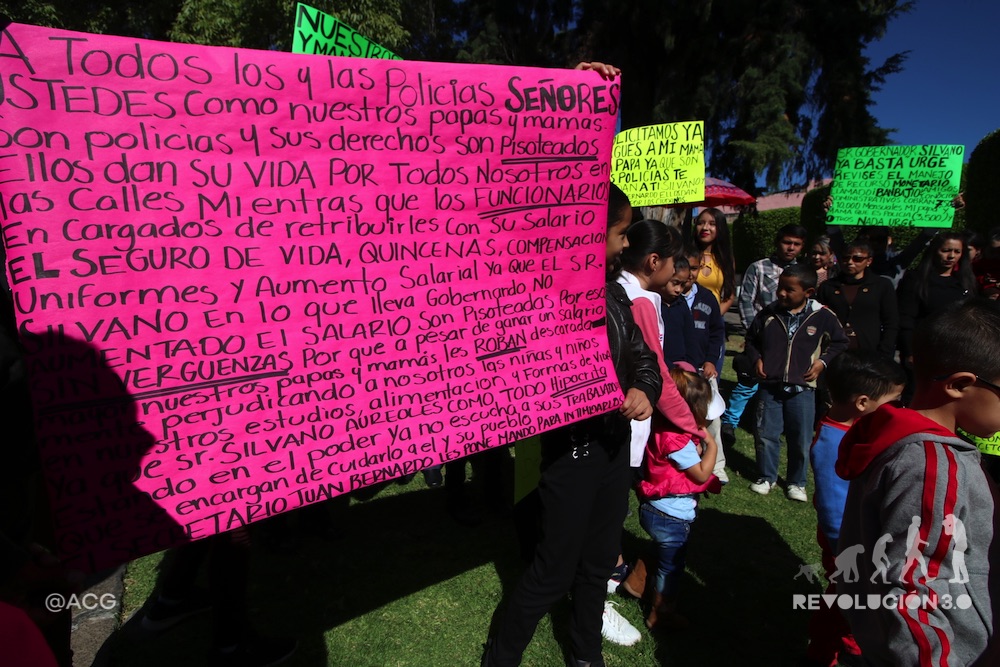 A Todos los y las Policias SEÑORES
USTEDES Como nuestros papas y mamas
son policias y sus derechos son Pisoteados
Ellos dan SU VIDA POR Todos Nosotros en
las Calles Mientras que los FUNCIONARIO
en Cargados de retribuirles con su Salario
EL SEGURO DE VIDA, QUINCENAS, COMPENSACION
Uniformes y Aumento Salarial Ya que EL SR.
SILVANO EN lo que lleva Gobernando NO
AUMENTADO EL SALARIO son Pisoteados Por esos
SIN VERGUENZAS Por que a pesar de ganar un salario
nuestros papas y mamás les ROBAN descarada
perjudicando a nosotros las niñas y niños
estros estudios, alimentación y Formas de VIDA
e SR. SILVANO AUREOLES COMO, TODO Hipocrita
do en el poder ya no escucha a sus TRABAJADO
encargan de cuidarlo a el y su pueblo
SECRETARIO JUAN BERNARDO LES PONE MANDO PARA INTIMIDARLOS
NUESTROS
Y MA
LICITAMOS YA
GUES A MI MAMA
PAPA YA QUE SON
POLICIAS TE
DANA TI SILVANO
SR GOBERNADOR SILVANO
YA BASTA URGE
REVISES EL MANEJO
DE RECURSO MONETARIO
MAMA QUE ES POLICIA
URGE
@ACG
REVOLUCIÓN3.0